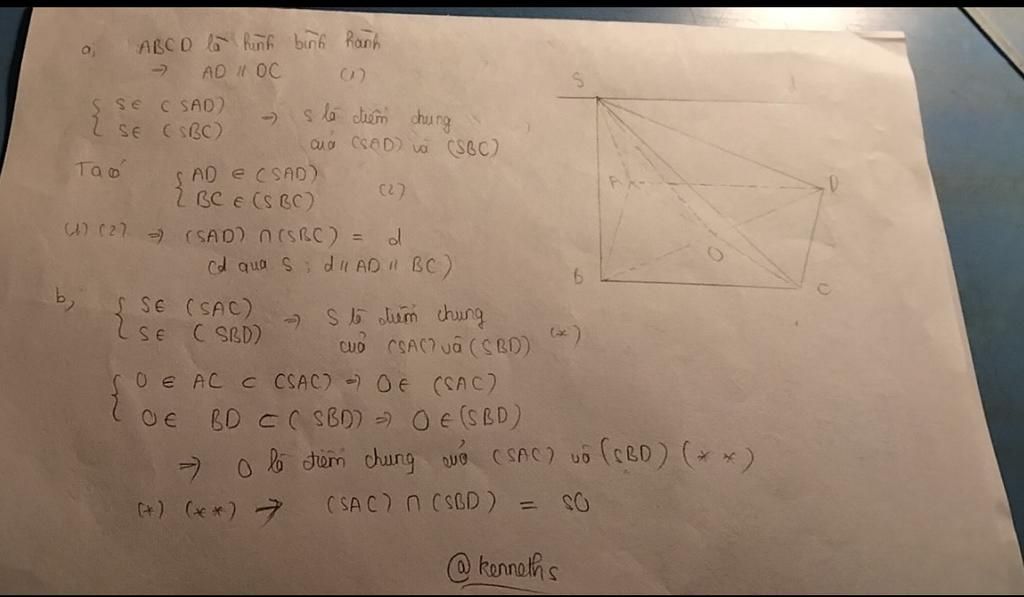 a, ABCD là hình bình hành
→ AD // DC (1)
{ S ∈ (SAD)
{ S ∈ (SBC)
→ S là điểm chung
của (SAD) và (SBC)
Ta có
{ AD ∈ (SAD)
{ BC ∈ (SBC)
(2)
(1) (2) ⇒ (SAD) ∩ (SBC) = d
(d qua S ; d // AD // BC)
b, { S ∈ (SAC)
{ S ∈ (SBD)
→ S là điểm chung
của (SAC) và (SBD) (*)
{ O ∈ AC ⊂ (SAC) ⇒ O ∈ (SAC)
{ O ∈ BD ⊂ (SBD) ⇒ O ∈ (SBD)
⇒ O là điểm chung của (SAC) và (SBD) (**)
(*) (**) → (SAC) ∩ (SBD) = SO
@kenneths
S
A
D
O
B
C